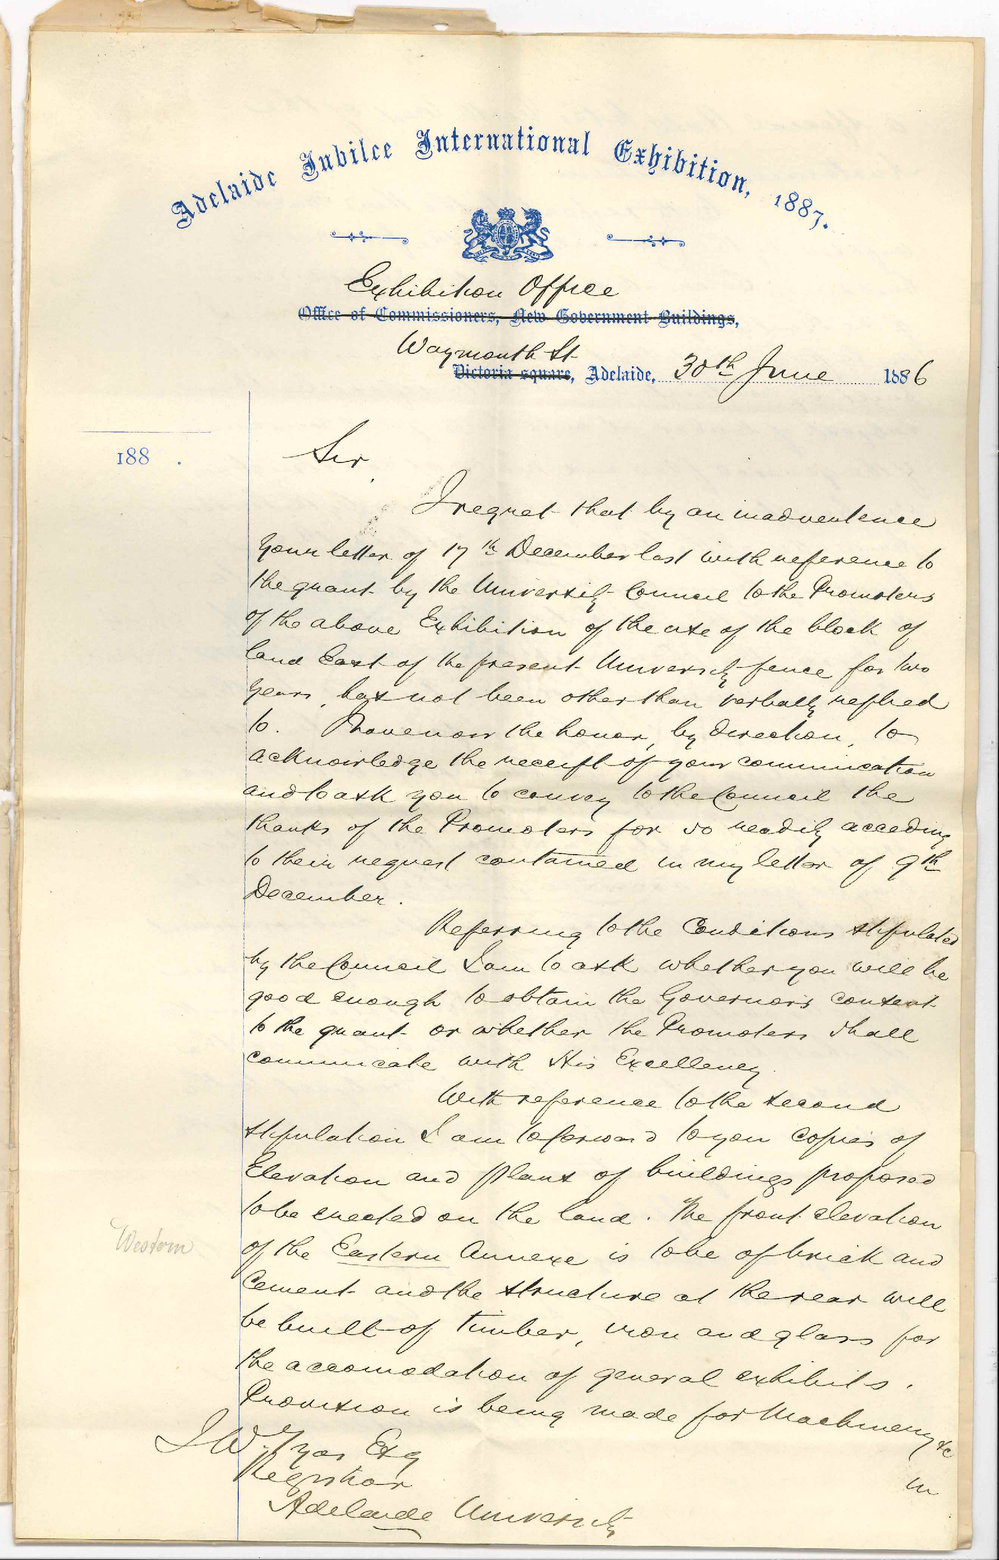 Adelaide Jubilee International Exhibition, 1887.
Exhibition Office
Office of Commissioners, New Government Buildings,
Waymouth St
Victoria square, Adelaide, 30th June 1886
188 .
Sir,
I regret that by an inadvertence
your letter of 17th December last with reference to
the grant by the University Council to the Promoters
of the above Exhibition of the use of the block of
land East of the present University fence for two
years, has not been other than verbally replied
to. I have now the honor, by direction, to
acknowledge the receipt of your communication
and to ask you to convey to the Council the
thanks of the Promoters for so readily acceding
to their request contained in my letter of 9th
December.
Referring to the Conditions stipulated
by the Council I am to ask whether you will be
good enough to obtain the Governor's consent
to the grant or whether the Promoters shall
communicate with His Excellency.
With reference to the second
stipulation I am to forward to you copies of
Elevation and plans of buildings proposed
to be erected on the land. The front elevation
Western
of the Eastern Annexe is to be of brick and
cement and the structure at the rear will
be built of timber, iron and glass for
the accomodation of general exhibits.
Provision is being made for Machinery &c
in
J W. Tyas Esq
Registrar
Adelaide University